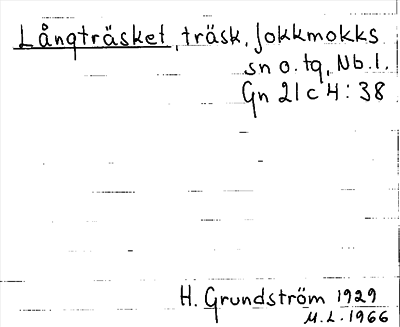 Långträsket, träsk, Jokkmokks
sn o. tg, Nb. l.
Gn 21 c 4 : 38
H. Grundström 1929
M. L. 1966